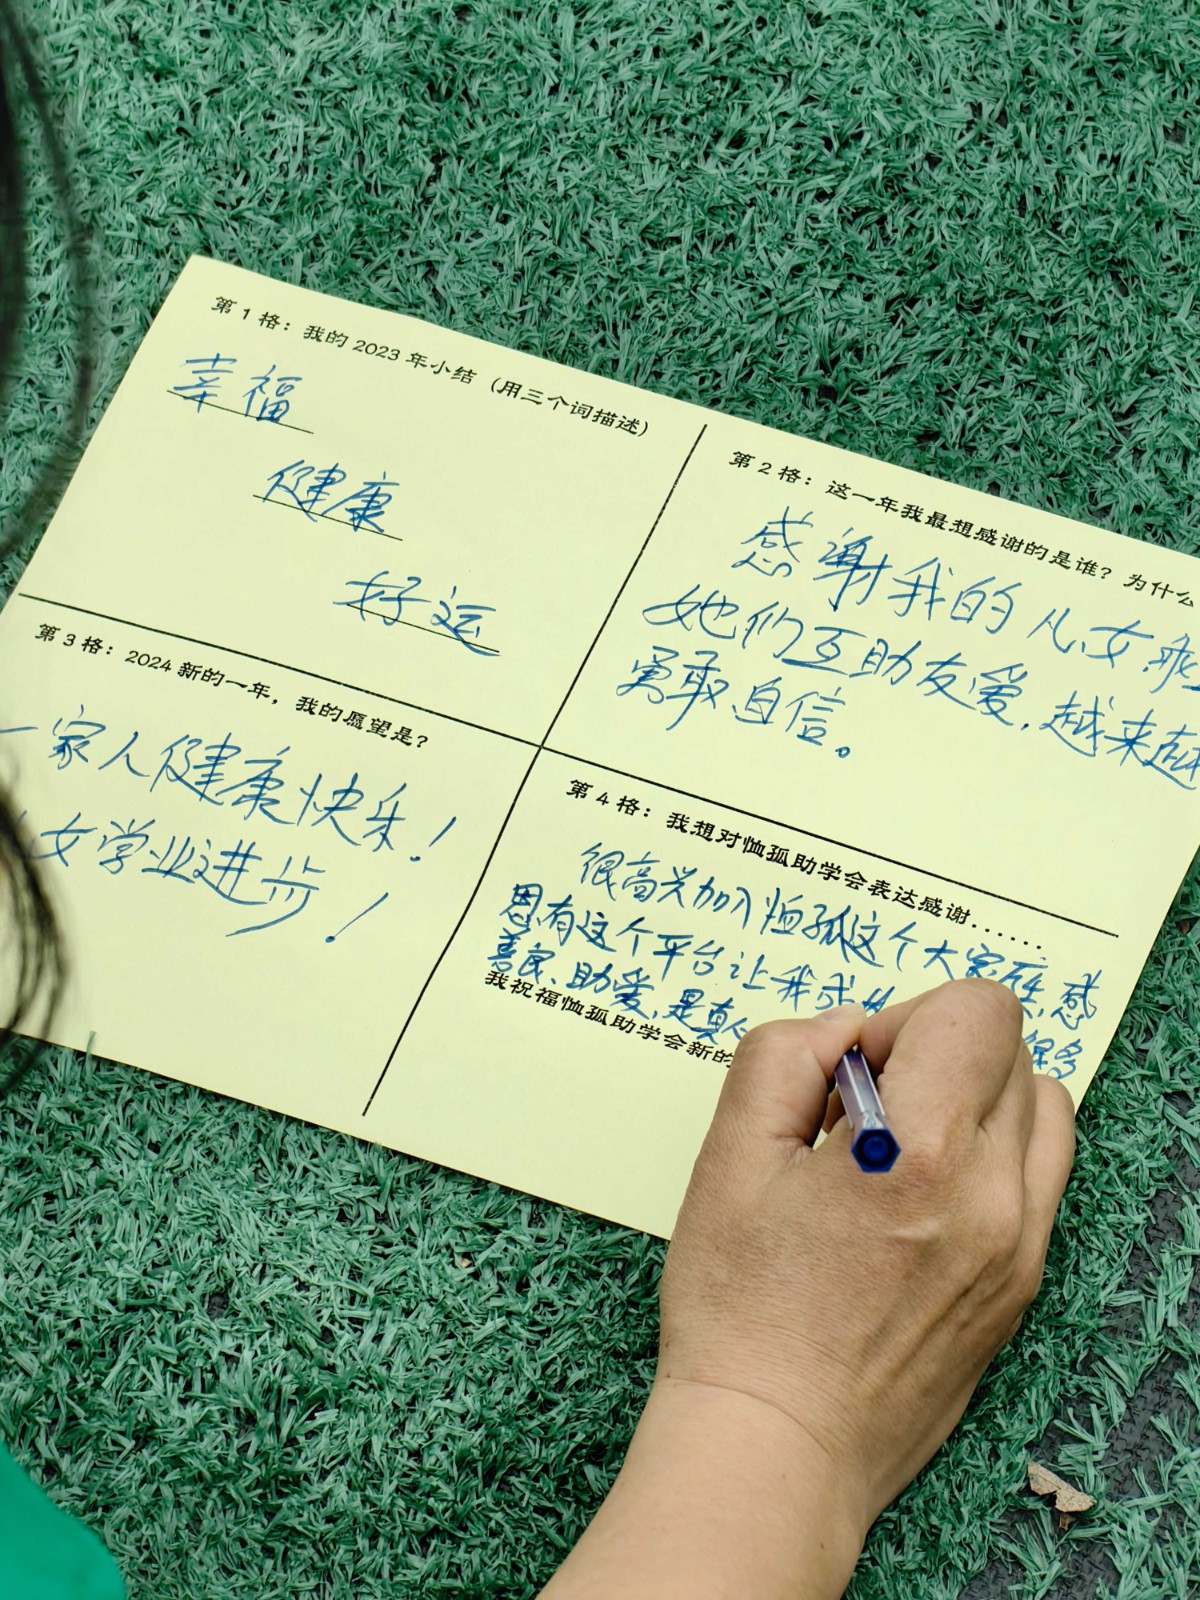 第1格：我的2023年小结（用三个词描述）
幸福
健康
好运
第2格：这一年我最想感谢的是谁？为什么
感谢我的儿女乖
她们互助友爱，越来越
勇敢自信。
第3格：2024新的一年，我的愿望是？
一家人健康快乐！
女学业进步！
第4格：我想对恤孤助学会表达感谢......
很高兴加入恤孤这个大家庭，感
恩有这个平台让我成 很多
善民、助爱，是真
我祝福恤孤助学会新的